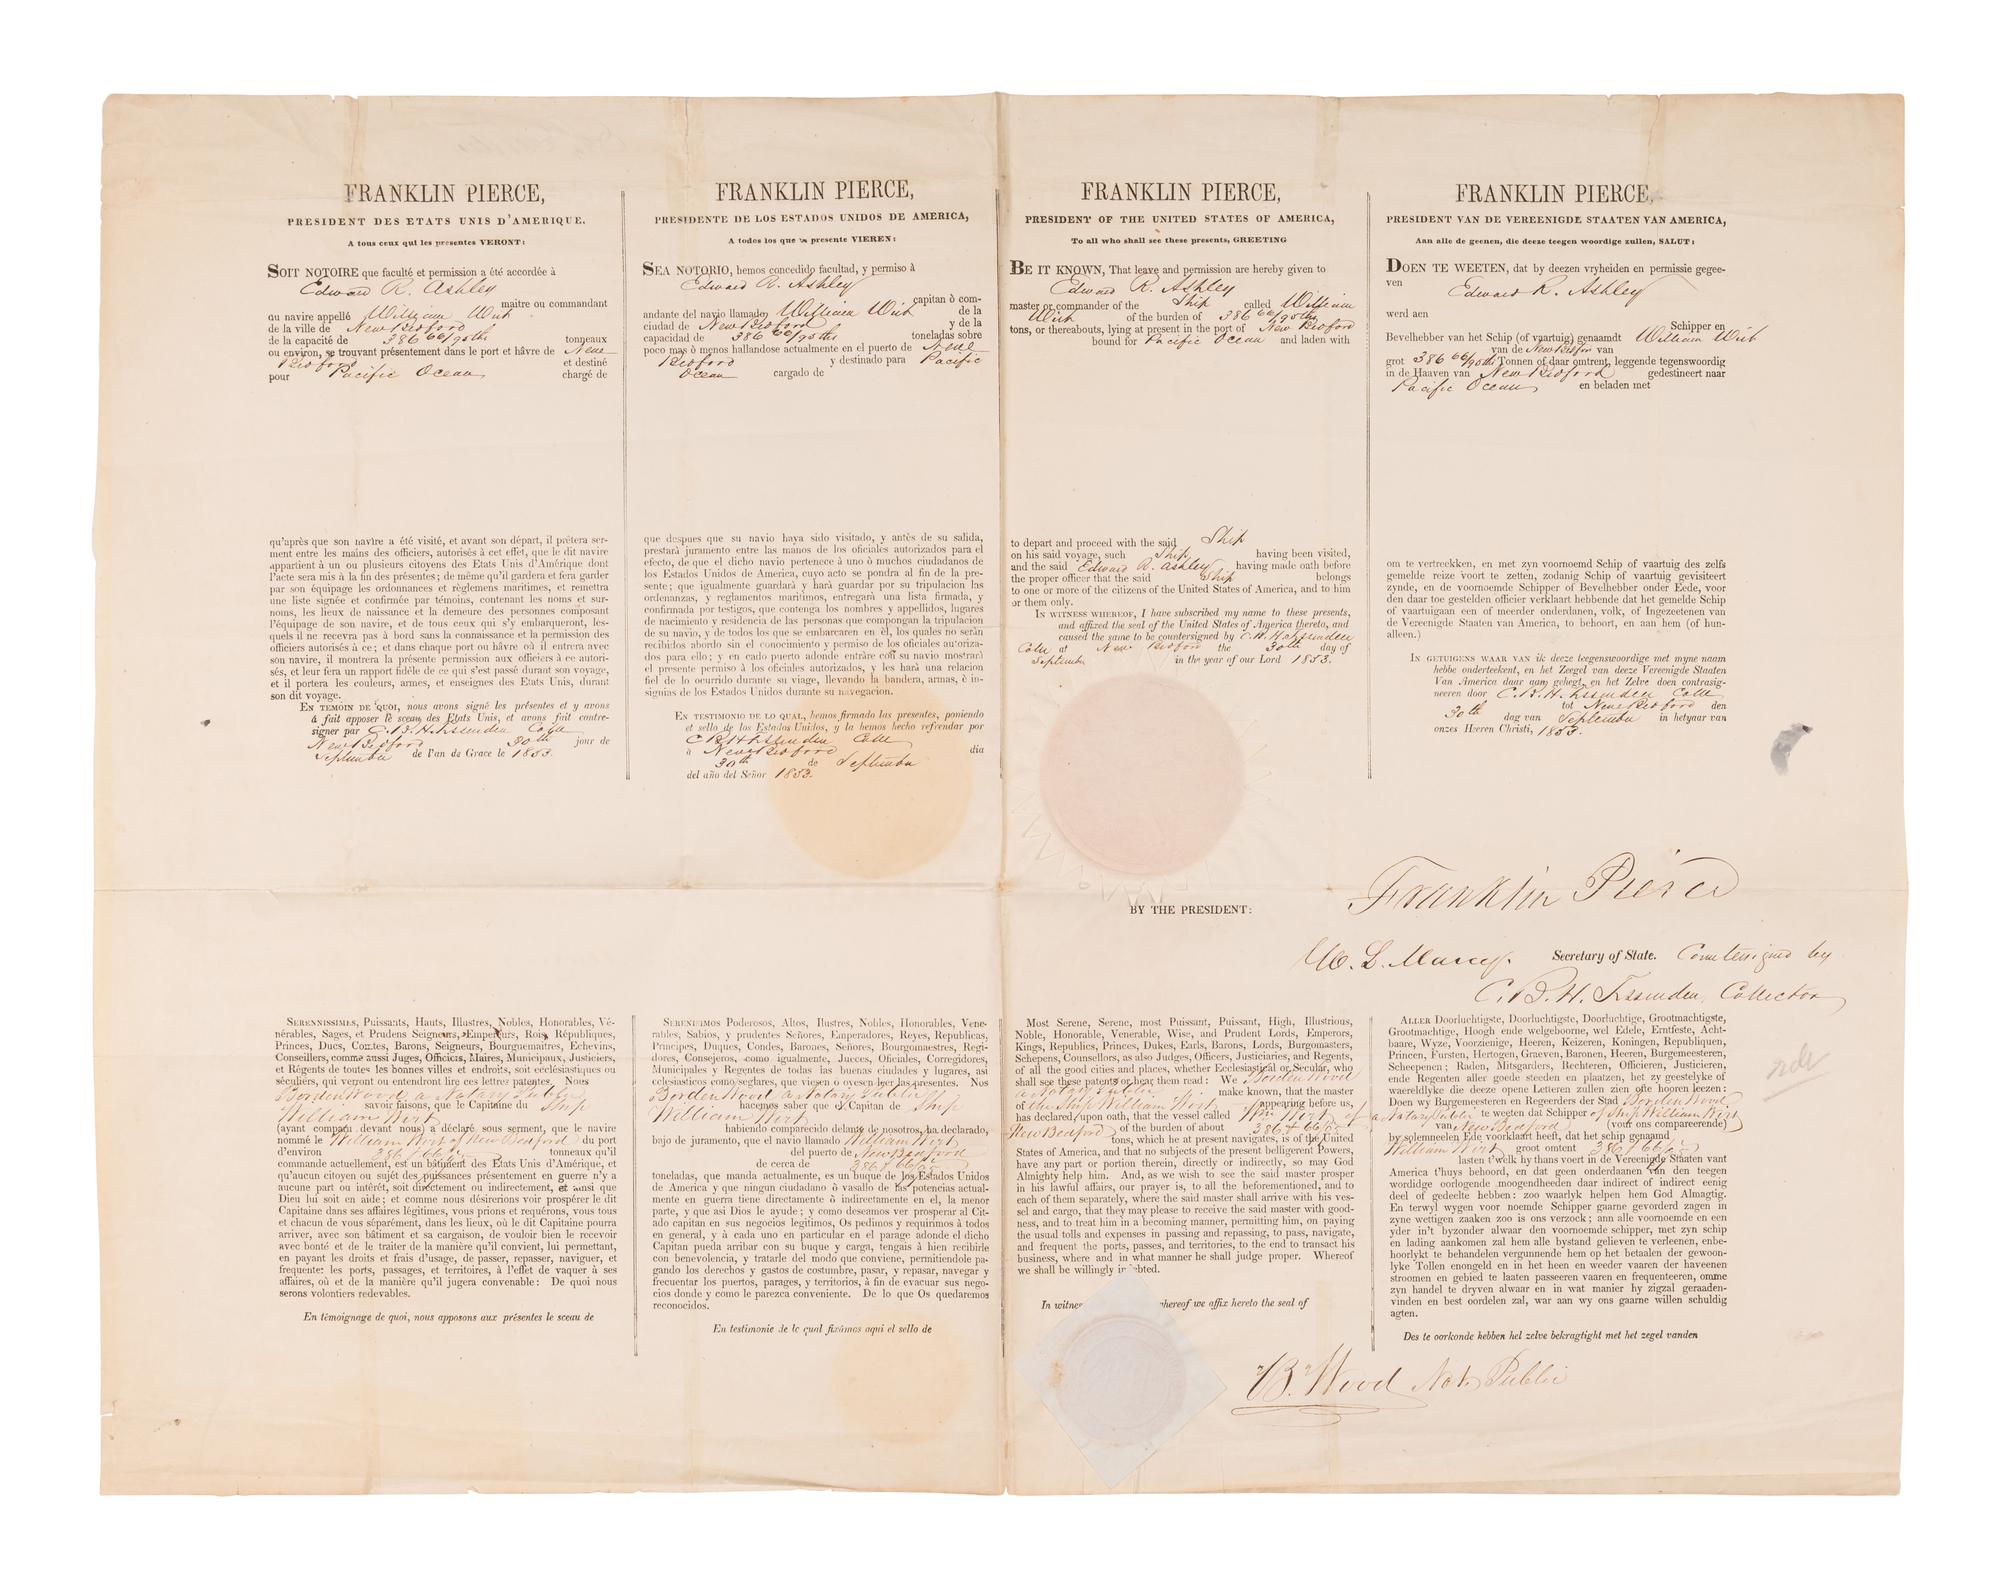 FRANKLIN PIERCE,
PRESIDENT DES ETATS UNIS D'AMERIQUE.
A tous ceux qui les presentes VERONT:
SOIT NOTOIRE que faculté et permission a été accordée à
Edward R. Ashley
maitre ou commandant
du navire appellé William Wirt
de la ville de New Bedford
de la capacité de 386 66/95ths tonneaux
ou environ, se trouvant présentement dans le port et hâvre de New
Bedford et destiné
pour Pacific Ocean chargé de
qu'après que son navire a été visité, et avant son départ, il prêtera ser-
ment entre les mains des officiers, autorisés à cet effet, que le dit navire
appartient à un ou plusieurs citoyens des Etats Unis d'Amérique dont
l'acte sera mis à la fin des présentes; de même qu'il gardera et fera garder
par son équipage les ordonnances et règlemens maritimes, et remettra
une liste signée et confirmée par témoins, contenant les noms et sur-
noms, les lieux de naissance et la demeure des personnes composant
l'équipage de son navire, et de tous ceux qui s'y embarqueront, les-
quels il ne recevra pas à bord sans la connaissance et la permission des
officiers autorisés à ce; et dans chaque port ou hâvre où il entrera avec
son navire, il montrera la présente permission aux officiers à ce autori-
sés, et leur fera un rapport fidèle de ce qui s'est passé durant son voyage,
et il portera les couleurs, armes, et enseignes des Etats Unis, durant
son dit voyage.
EN TEMOIN DE QUOI, nous avons signé les présentes et y avons
à fait apposer le sceau des Etats Unis, et avons fait contre-
signer par C. B. H. Fessenden Colle
New Bedford 30th jour de
September de l'an de Grace le 1853.
FRANKLIN PIERCE,
PRESIDENTE DE LOS ESTADOS UNIDOS DE AMERICA,
A todos los que la presente VIEREN:
SEA NOTORIO, hemos concedido facultad, y permiso à
Edward R. Ashley
capitan ò com-
andante del navio llamado William Wirt de la
ciudad de New Bedford y de la
capacidad de 386 66/95ths toneladas sobre
poco mas ò menos hallandose actualmente en el puerto de New
Bedford y destinado para Pacific
Ocean cargado de
que despues que su navio haya sido visitado, y antès de su salida,
prestará juramento entre las manos de los oficiales autorizados para el
efecto, de que el dicho navio pertenece à uno ò muchos ciudadanos de
los Estados Unidos de America, cuyo acto se pondra al fin de la pre-
sente; que igualmente guardará y hará guardar por su tripulacion las
ordenanzas, y reglamentos maritimos, entregará una lista firmada, y
confirmada por testigos, que contenga los nombres y appellidos, lugares
de nacimiento y residencia de las personas que compongan la tripulacion
de su navio, y de todos los que se embarcaren en él, los quales no serán
recibidos abordo sin el conocimiento y permiso de los oficiales autoriza-
dos para ello; y en cado puerto adonde entràre con su navio mostrarà
el presente permiso à los oficiales autorizados, y les hará una relacion
fiel de lo ocurrido durante su viage, llevando la bandera, armas, è in-
signias de los Estados Unidos durante su navegacion.
EN TESTIMONIO DE LO QUAL, hemos firmado las presentes, poniendo
et sello de los Estados Unidos, y la hemos hecho refrendar por
C B H Fessenden Colle
à New Bedford dia
30th de September
del año del Señor 1853.
FRANKLIN PIERCE,
PRESIDENT OF THE UNITED STATES OF AMERICA,
To all who shall see these presents, GREETING
BE IT KNOWN, That leave and permission are hereby given to
Edward R. Ashley
master or commander of the Ship called William
Wirt of the burden of 386 66/95ths
tons, or thereabouts, lying at present in the port of New Bedford
bound for Pacific Ocean and laden with
to depart and proceed with the said Ship
on his said voyage, such Ship having been visited,
and the said Edward R. Ashley having made oath before
the proper officer that the said Ship belongs
to one or more of the citizens of the United States of America, and to him
or them only.
IN WITNESS WHEREOF, I have subscribed my name to these presents,
and affixed the seal of the United States of America thereto, and
caused the same to be countersigned by C. B. H. Fessenden
Colle at New Bedford the 30th day of
September in the year of our Lord 1853.
FRANKLIN PIERCE,
PRESIDENT VAN DE VEREENIGDE STAATEN VAN AMERICA,
Aan alle de geenen, die deeze teegen woordige zullen, SALUT:
DOEN TE WEETEN, dat by deezen vryheiden en permissie gegee-
ven Edward R. Ashley
werd aen
Schipper en
Bevelhebber van het Schip (of vaartuig) genaamdt William Wirt
van de New Bedfor van
grot 386 66/95ths Tonnen of daar omtrent, leggende tegenswoordig
in de Haaven van New Bedford gedestineert naar
Pacific Ocean en beladen met
om te vertreekken, en met zyn voornoemd Schip of vaartuig des zelfs
gemelde reize voort te zetten, zodanig Schip of vaartuig gevisiteert
zynde, en de voornoemde Schipper of Bevelhebber onder Eede, voor
den daar toe gestelden officier verklaart hebbende dat het gemelde Schip
of vaartuigaan een of meerder onderdanen, volk, of Ingezeetenen van
de Vereenigde Staaten van America, to behoort, en aan hem (of hun-
alleen.)
IN GETUIGENS WAAR VAN ik deeze teegenswoordige met myne naam
hebbe onderteekent, en het Zeegel van deeze Vereenigde Staaten
Van America daar aam gehegt, en het Zelve doen contrasig-
neeren door C. B. H. Fessenden Colle
tot New Bedford den
30th dag van September in hetyaar van
onzes Heeren Christi, 1853.
BY THE PRESIDENT:
Franklin Pierce
W. L. Marcy. Secretary of State. Countersigned by
C. B. H. Fessenden, Collector
SERENNISSIMES, Puissants, Hauts, Illustres, Nobles, Honorables, Vé-
nérables, Sages, et Prudens Seigneurs, Empereurs, Rois, Républiques,
Princes, Ducs, Comtes, Barons, Seigneurs, Bourguemaitres, Echevins,
Conseillers, comme aussi Juges, Officiers, Maires, Municipaux, Justiciers,
et Régents de toutes les bonnes villes et endroits, soit ecclésiastiques ou
séculiers, qui verront ou entendront lire ces lettres patentes. Nous
Borden Wood a Notary Public
savoir faisons, que le Capitaine du Ship
William Wirt
(ayant comparu devant nous) a déclaré sous serment, que le navire
nommé le William Wirt of New Bedford du port
d'environ 386 & 66/95 tonneaux qu'il
commande actuellement, est un bâtiment des Etats Unis d'Amérique, et
qu'aucun citoyen ou sujét des puissances présentement en guerre n'y a
aucune part ou intérêt, soit directement ou indirectement, et ainsi que
Dieu lui soit en aide; et comme nous désirerions voir prospérer le dit
Capitaine dans ses affaires légitimes, vous prions et requérons, vous tous
et chacun de vous séparément, dans les lieux, où le dit Capitaine pourra
arriver, avec son bâtiment et sa cargaison, de vouloir bien le recevoir
avec bonté et de le traiter de la manière qu'il convient, lui permettant,
en payant les droits et frais d'usage, de passer, repasser, naviguer, et
frequente: les ports, passages, et territoires, à l'effet de vaquer à ses
affaires, où et de la manière qu'il jugera convenable: De quoi nous
serons volontiers redevables.
En témoignage de quoi, nous apposons aux présentes le sceau de
SERENISIMOS Poderosos, Altos, Ilustres, Nobles, Honorables, Vene-
rables, Sabios, y prudentes Señores, Emperadores, Reyes, Republicas,
Principes, Duques, Condes, Barones, Señores, Bourgomaestres, Regi-
dores, Consejeros, como igualmente, Jueces, Oficiales, Corregidores,
Municipales y Regentes de todas las buenas ciudades y lugares, asi
eclesiasticos como seglares, que viesen ò oyesen leer las presentes. Nos
Borden Wood a Notary Public
hacemos saber que el Capitan de Ship
William Wirt
habiendo comparecido delante de nosotros, ha declarado,
bajo de juramento, que el navio llamado William Wirt
del puerto de New Bedford
de cerca de 386 & 66/95
toneladas, que manda actualmente, es un buque de los Estados Unidos
de America y que ningun ciudadano ò vasallo de las potencias actual-
mente en guerra tiene directamente ò indirectamente en el, la menor
parte, y que asi Dios le ayude; y como deseamos ver prosperar al Ci-
tado capitan en sus negocios legitimos, Os pedimos y requirimos à todos
en general, y à cada uno en particular en el parage adonde el dicho
Capitan pueda arribar con su buque y carga, tengais à hien recibirle
con benevolencia, y tratarle del modo que conviene, permitiendole pa-
gando los derechos y gastos de costumbre, pasar, y repasar, navegar y
frecuentar los puertos, parages, y territorios, à fin de evacuar sus nego-
cios donde y como le parezca conveniente. De lo que Os quedaremos
reconocidos.
En testimonie de lo qual fixámos aqui el sello de
Most Serene, Serene, most Puissant, Puissant, High, Illustrious,
Noble, Honorable, Venerable, Wise, and Prudent Lords, Emperors,
Kings, Republics, Princes, Dukes, Earls, Barons, Lords, Burgomasters,
Schepens, Counsellors, as also Judges, Officers, Justiciaries, and Regents,
of all the good cities and places, whether Ecclesiastical or Secular, who
shall see these patents or hear them read: We Borden Wood
a Notary Public make known, that the master
of the Ship William Wirt appearing before us,
has declared, upon oath, that the vessel called Wm Wirt of
New Bedford of the burden of about 386 & 66/95
tons, which he at present navigates, is of the United
States of America, and that no subjects of the present belligerent Powers,
have any part or portion therein, directly or indirectly, so may God
Almighty help him. And, as we wish to see the said master prosper
in his lawful affairs, our prayer is, to all the beforementioned, and to
each of them separately, where the said master shall arrive with his ves-
sel and cargo, that they may please to receive the said master with good-
ness, and to treat him in a becoming manner, permitting him, on paying
the usual tolls and expenses in passing and repassing, to pass, navigate,
and frequent the ports, passes, and territories, to the end to transact his
business, where and in what manner he shall judge proper. Whereof
we shall be willingly indebted.
In witness whereof we affix hereto the seal of
ALLER Doorluchtigste, Doorluchtigste, Doorluchtige, Grootmachtigste,
Grootmachtige, Hoogh ende welgeboorne, wel Edele, Erntfeste, Acht-
baare, Wyze, Voorzienige, Heeren, Keizeren, Koningen, Republiquen,
Princen, Fursten, Hertogen, Graeven, Baronen, Heeren, Burgemeesteren,
Scheepenen; Raden, Mitsgarders, Rechteren, Officieren, Justicieren,
ende Regenten aller goede steeden en plaatzen, het zy geestelyke of
waereldlyke die deeze opene Letteren zullen zien ofte hooren leezen:
Doen wy Burgemeesteren en Regeerders der Stad Borden Wood
a Notary Public te weeten dat Schipper of Ship William Wirt
van New Bedford (voor ons compareerende)
by solemneelen Ede voorklaart heeft, dat het schip genaamd
William Wirt groot omtent 386 & 66/95
lasten t'welk hy thans voert in de Vereenigde Staaten vant
America t'huys behoord, en dat geen onderdaanen van den teegen
wordidge oorlogende moogendheeden daar indirect of indirect eenig
deel of gedeelte hebben: zoo waarlyk helpen hem God Almagtig.
En terwyl wygen voor noemde Schipper gaarne gevorderd zagen in
zyne wettigen zaaken zoo is ons verzock; ann alle voornoemde en een
yder in't byzonder alwaar den voornoemde schipper, met zyn schip
en lading aankomen zal hem alle bystand gelieven te verleenen, enbe-
hoorlykt te behandelen vergunnende hem op het betaalen der gewoon-
lyke Tollen enongeld en in het heen en weeder vaaren der haveenen
stroomen en gebied te laaten passeeren vaaren en frequenteeren, omme
zyn handel te dryven alwaar en in wat manier hy zigzal geraaden-
vinden en best oordelen zal, war aan wy ons gaarne willen schuldig
agten.
Des te oorkonde kebben hel zelve bekragtight met het zegel vanden
B. Wood Not. Public